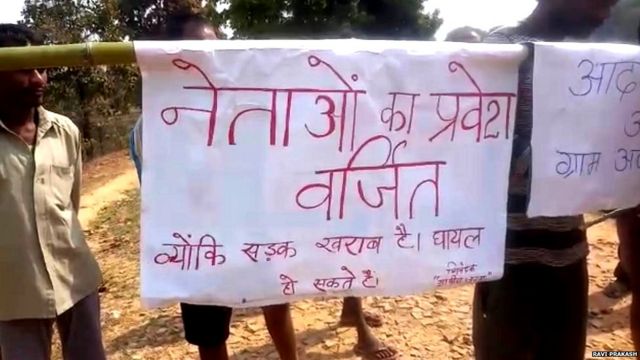 नेताओं का प्रवेश
वर्जित
क्योंकि सड़क खराब है। घायल
हो सकते है।
निवेदक
आद
ग्राम
RAVI PRAKASH